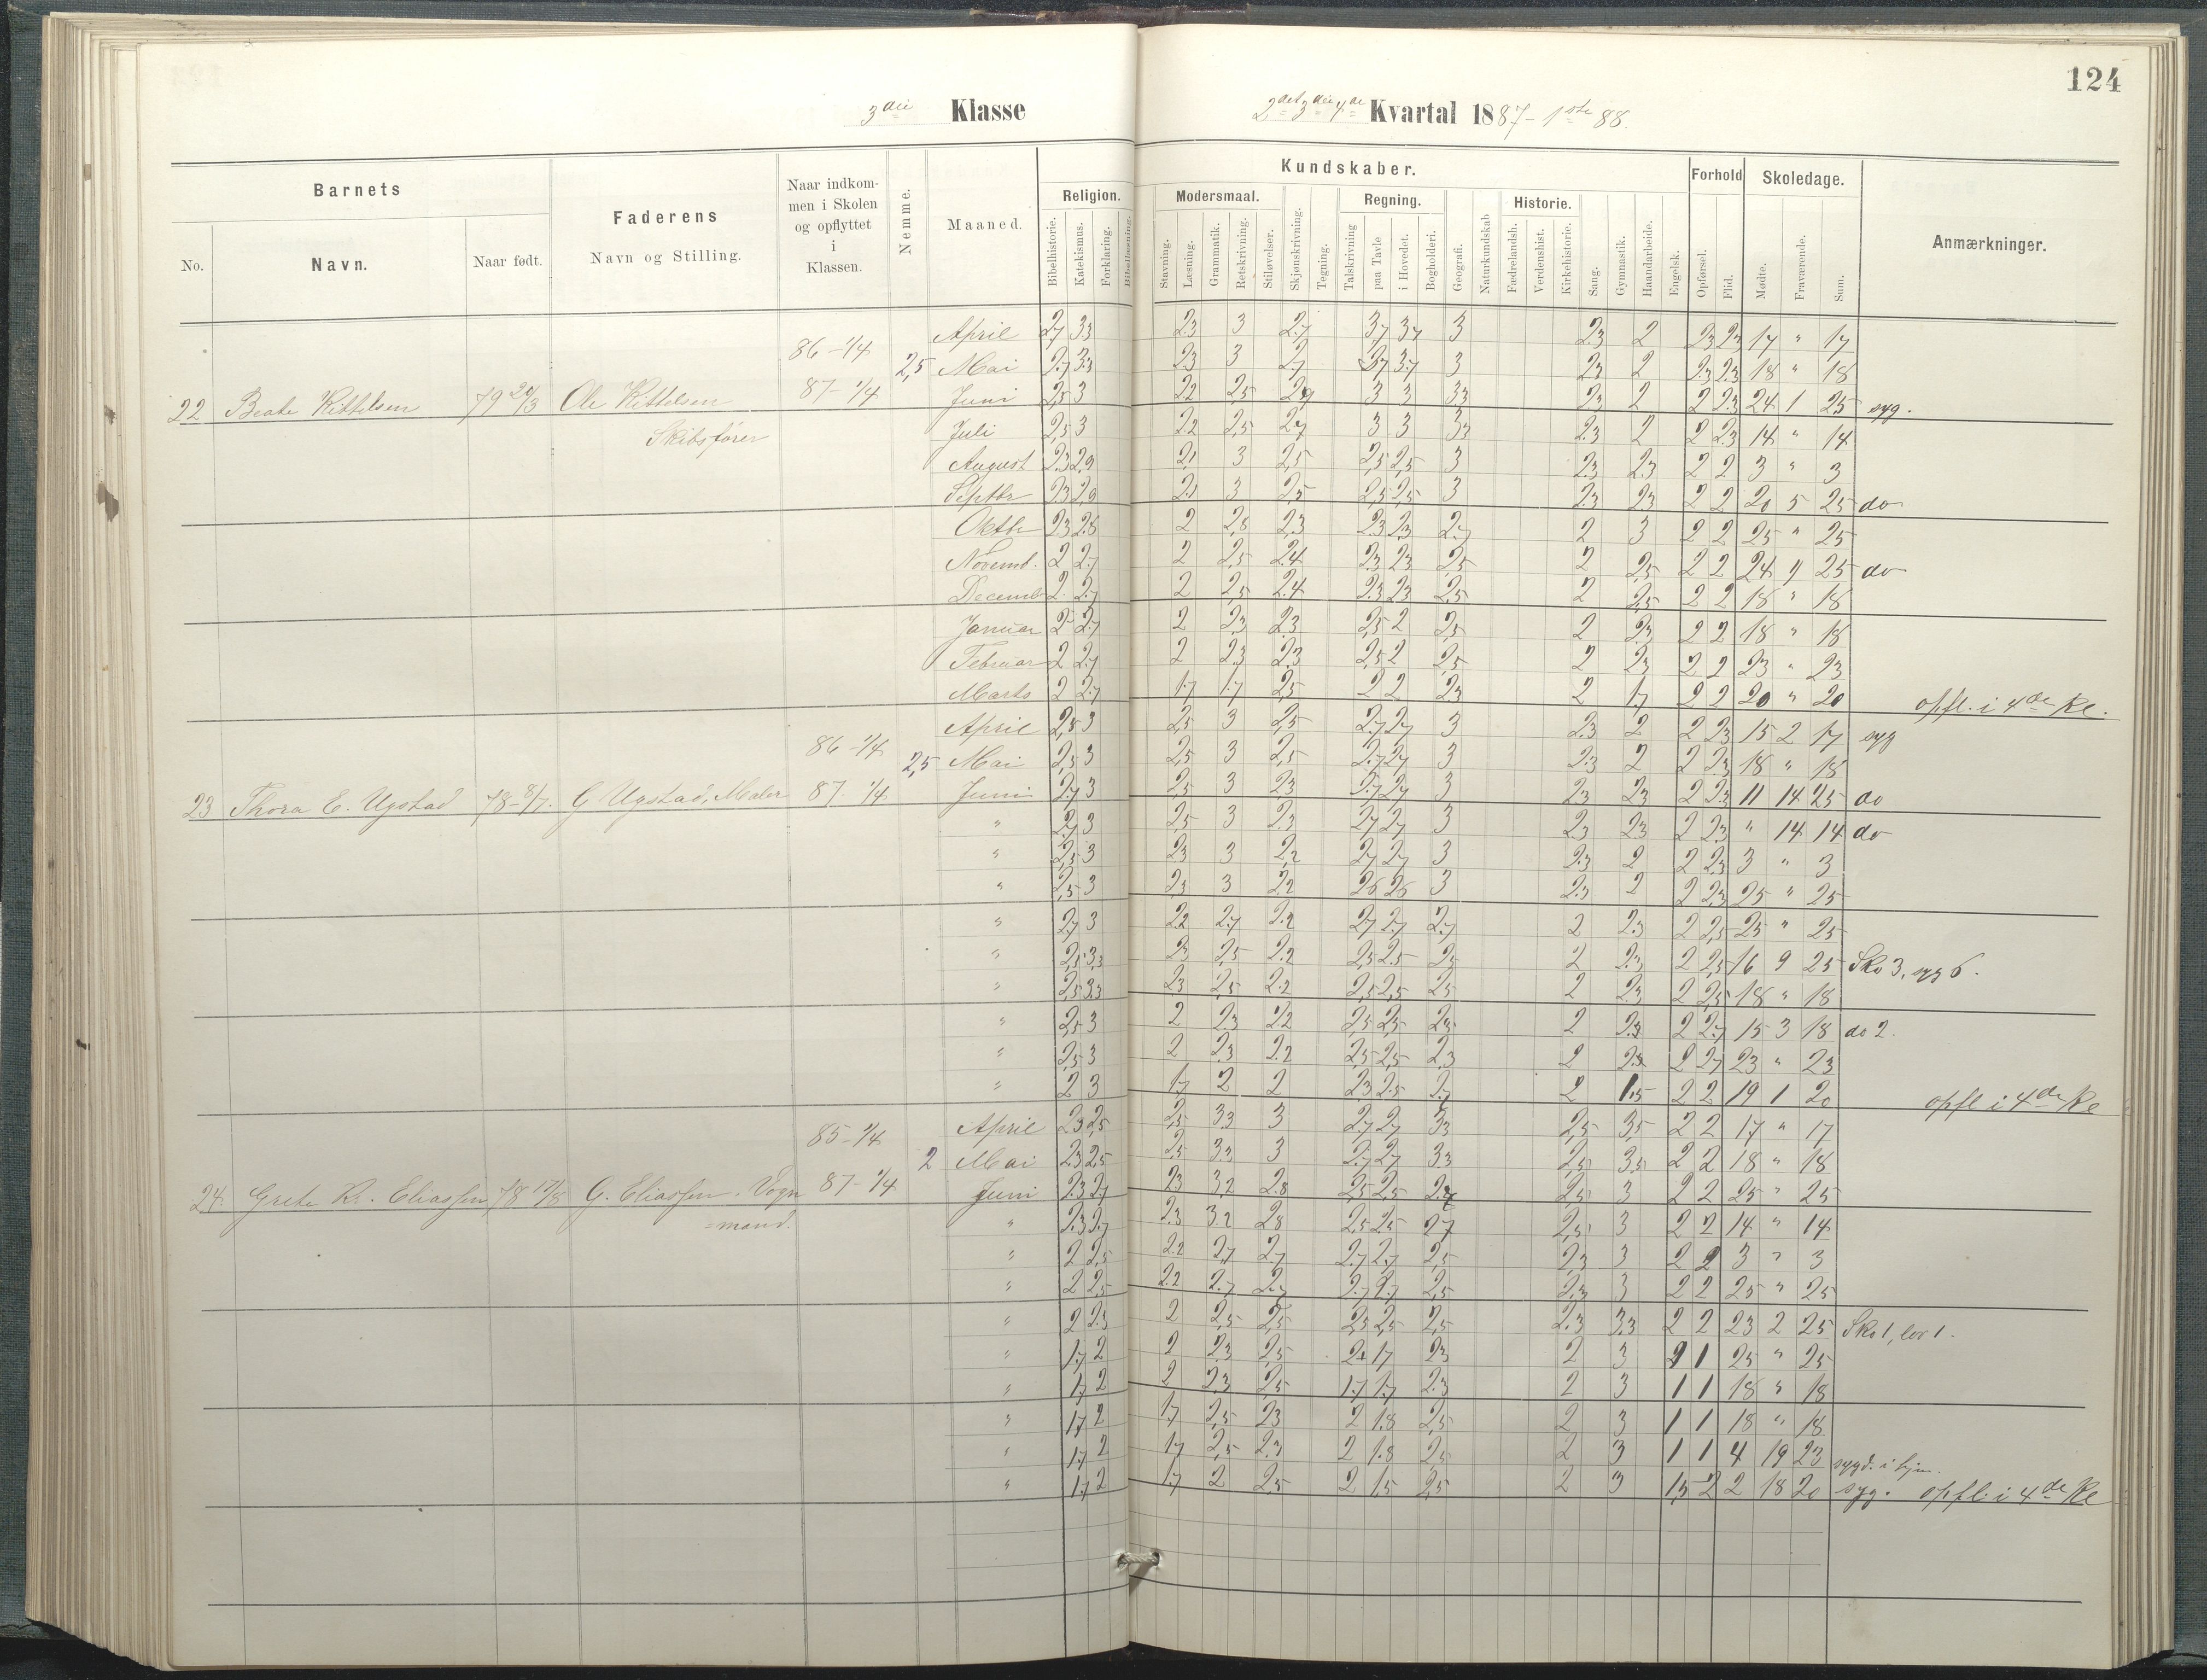 124
3die Klasse
2det 3die 4de Kvartal 1887 - 1ste 88.
Barnets
No.
Navn.
Naar født.
Faderens
Navn og Stilling.
Naar indkom-
men i Skolen
og opflyttet
i
Klassen.
Nemme.
Maaned.
Kundskaber.
Religion.
Bibelhistorie.
Katekismus.
Forklaring.
Bibellæsning.
Modersmaal.
Stavning.
Læsning.
Grammatik.
Retskrivning.
Stiløvelser.
Skjønskrivning.
Tegning.
Regning.
Talskrivning
paa Tavle
i Hovedet.
Bogholderi.
Geografi.
Naturkundskab
Historie.
Fædrelandsh.
Verdenshist.
Kirkehistorie.
Sang.
Gymnastik.
Haandarbeide.
Engelsk.
Forhold
Opførsel.
Flid.
Skoledage.
Møite.
Fraværende.
Sum.
Anmærkninger.
April 2,7 3,3 2,3 3 2,7 3,7 3,7 3 2,3 2 2,3 2,3 17 " 17
86 - 1/4
2,5 Mai 2,7 3,3 2,3 3 2,7 3,7 3,7 3 2,3 2 2,3 2,3 18 " 18
22 Beate Kittelsen 79 20/3 Ole Kittelsen 87 - 1/4 Juni 2,5 3 2,2 2,5 2,7 3 3 3,3 2,3 2 2 2,3 24 1 25 syg.
Skibsfører Juli 2,5 3 2,2 2,5 2,7 3 3 3,3 2,3 2 2 2,3 14 " 14
August 2,3 2,9 2,1 3 2,5 2,5 2,5 3 2,3 2,3 2 2 3 " 3
Septbr 2,3 2,9 2,1 3 2,5 2,5 2,5 3 2,3 2,3 2 2 20 5 25 do
Oktbr 2,3 2,8 2 2,8 2,3 2,3 2,3 2,7 2 3 2 2 25 " 25
Novemb. 2 2,7 2 2,5 2,4 2,3 2,3 2,5 2 2,5 2 2 24 1 25 do
Decemb 2 2,7 2 2,5 2,4 2,3 2,3 2,5 2 2,5 2 2 18 " 18
Januar 2 2,7 2 2,3 2,3 2,5 2 2,5 2 2,3 2 2 18 " 18
Februar 2 2,7 2 2,3 2,3 2,5 2 2,5 2 2,3 2 2 23 " 23
Marts 2 2,7 1,7 1,7 2,5 2 2 2,3 2 1,7 2 2 20 " 20 opfl. i 4de Kl.
April 2,5 3 2,5 3 2,5 2,7 2,7 3 2,3 2 2 2,3 15 2 17 syg
86 - 1/4
2,5 Mai 2,5 3 2,5 3 2,5 2,7 2,7 3 2,3 2 2 2,3 18 " 18
23 Thora E. Ugstad 78 - 8/7. G Ugstad, Maler 87 - 1/4 Juni 2,7 3 2,5 3 2,3 2,7 2,7 3 2,3 2,3 2 2,3 11 14 25 do
" 2,7 3 2,5 3 2,3 2,7 2,7 3 2,3 2,3 2 2,3 " 14 14 do
" 2,5 3 2,3 3 2,2 2,7 2,7 3 2,3 2 2 2,3 3 " 3
" 2,5 3 2,3 3 2,2 2,6 2,6 3 2,3 2 2 2,3 25 " 25
" 2,7 3 2,2 2,7 2,2 2,7 2,7 2,7 2 2,3 2 2,5 25 " 25
" 2,5 3,3 2,3 2,5 2,2 2,5 2,5 2,5 2 2,3 2 2,5 16 9 25 Sko 3, syg 6.
" 2,5 3,3 2,3 2,5 2,2 2,5 2,5 2,5 2 2,3 2 2,5 18 " 18
" 2,5 3 2 2,3 2,2 2,5 2,5 2,3 2 2,3 2 2,7 15 3 18 do 2.
" 2,5 3 2 2,3 2,2 2,5 2,5 2,3 2 2,3 2 2,7 23 " 23
" 2 3 1,7 2 2 2,3 2,5 2,7 2 1,5 2 2 19 1 20 opfl i 4de Kl
April 2,3 2,5 2,5 3,3 3 2,7 2,7 3,3 2,5 3,5 2 2 17 " 17
85 - 1/4
2 Mai 2,3 2,5 2,5 3,3 3 2,7 2,7 3,3 2,5 3,5 2 2 18 " 18
24. Grete Kr. Eliassen 78 17/8 G. Eliassen, Vogn 87 - 1/4 Juni 2,3 2,7 2,3 3,2 2,8 2,5 2,5 2,7 2,5 3 2 2 25 " 25
=mand. " 2,3 2,7 2,3 3,2 2,8 2,5 2,5 2,7 2,5 3 2 2 14 " 14
" 2 2,5 2,2 2,7 2,7 2,7 2,7 2,5 2,3 3 2 2 3 " 3
" 2 2,5 2,2 2,7 2,7 2,7 2,7 2,5 2,3 3 2 2 25 " 25
" 2 2,3 2 2,5 2,5 2,3 2,5 2,5 2,3 3,3 2 2 23 2 25 Sko 1, lov 1.
" 1,7 2 2 2,3 2,5 2 1,7 2,3 2 3 1 1 25 " 25
" 1,7 2 2 2,3 2,5 1,7 1,7 2,3 2 3 1 1 18 " 18
" 1,7 2 1,7 2,5 2,3 2 1,8 2,5 2 3 1 1 18 " 18
" 1,7 2 1,7 2,5 2,3 2 1,8 2,5 2 3 1 1 4 19 23 sygd. i hjm.
" 1,7 2 1,7 2 2,5 2 1,5 2,5 2 3 1,5 2 2 18 20 syg. opfl. i 4de Kl